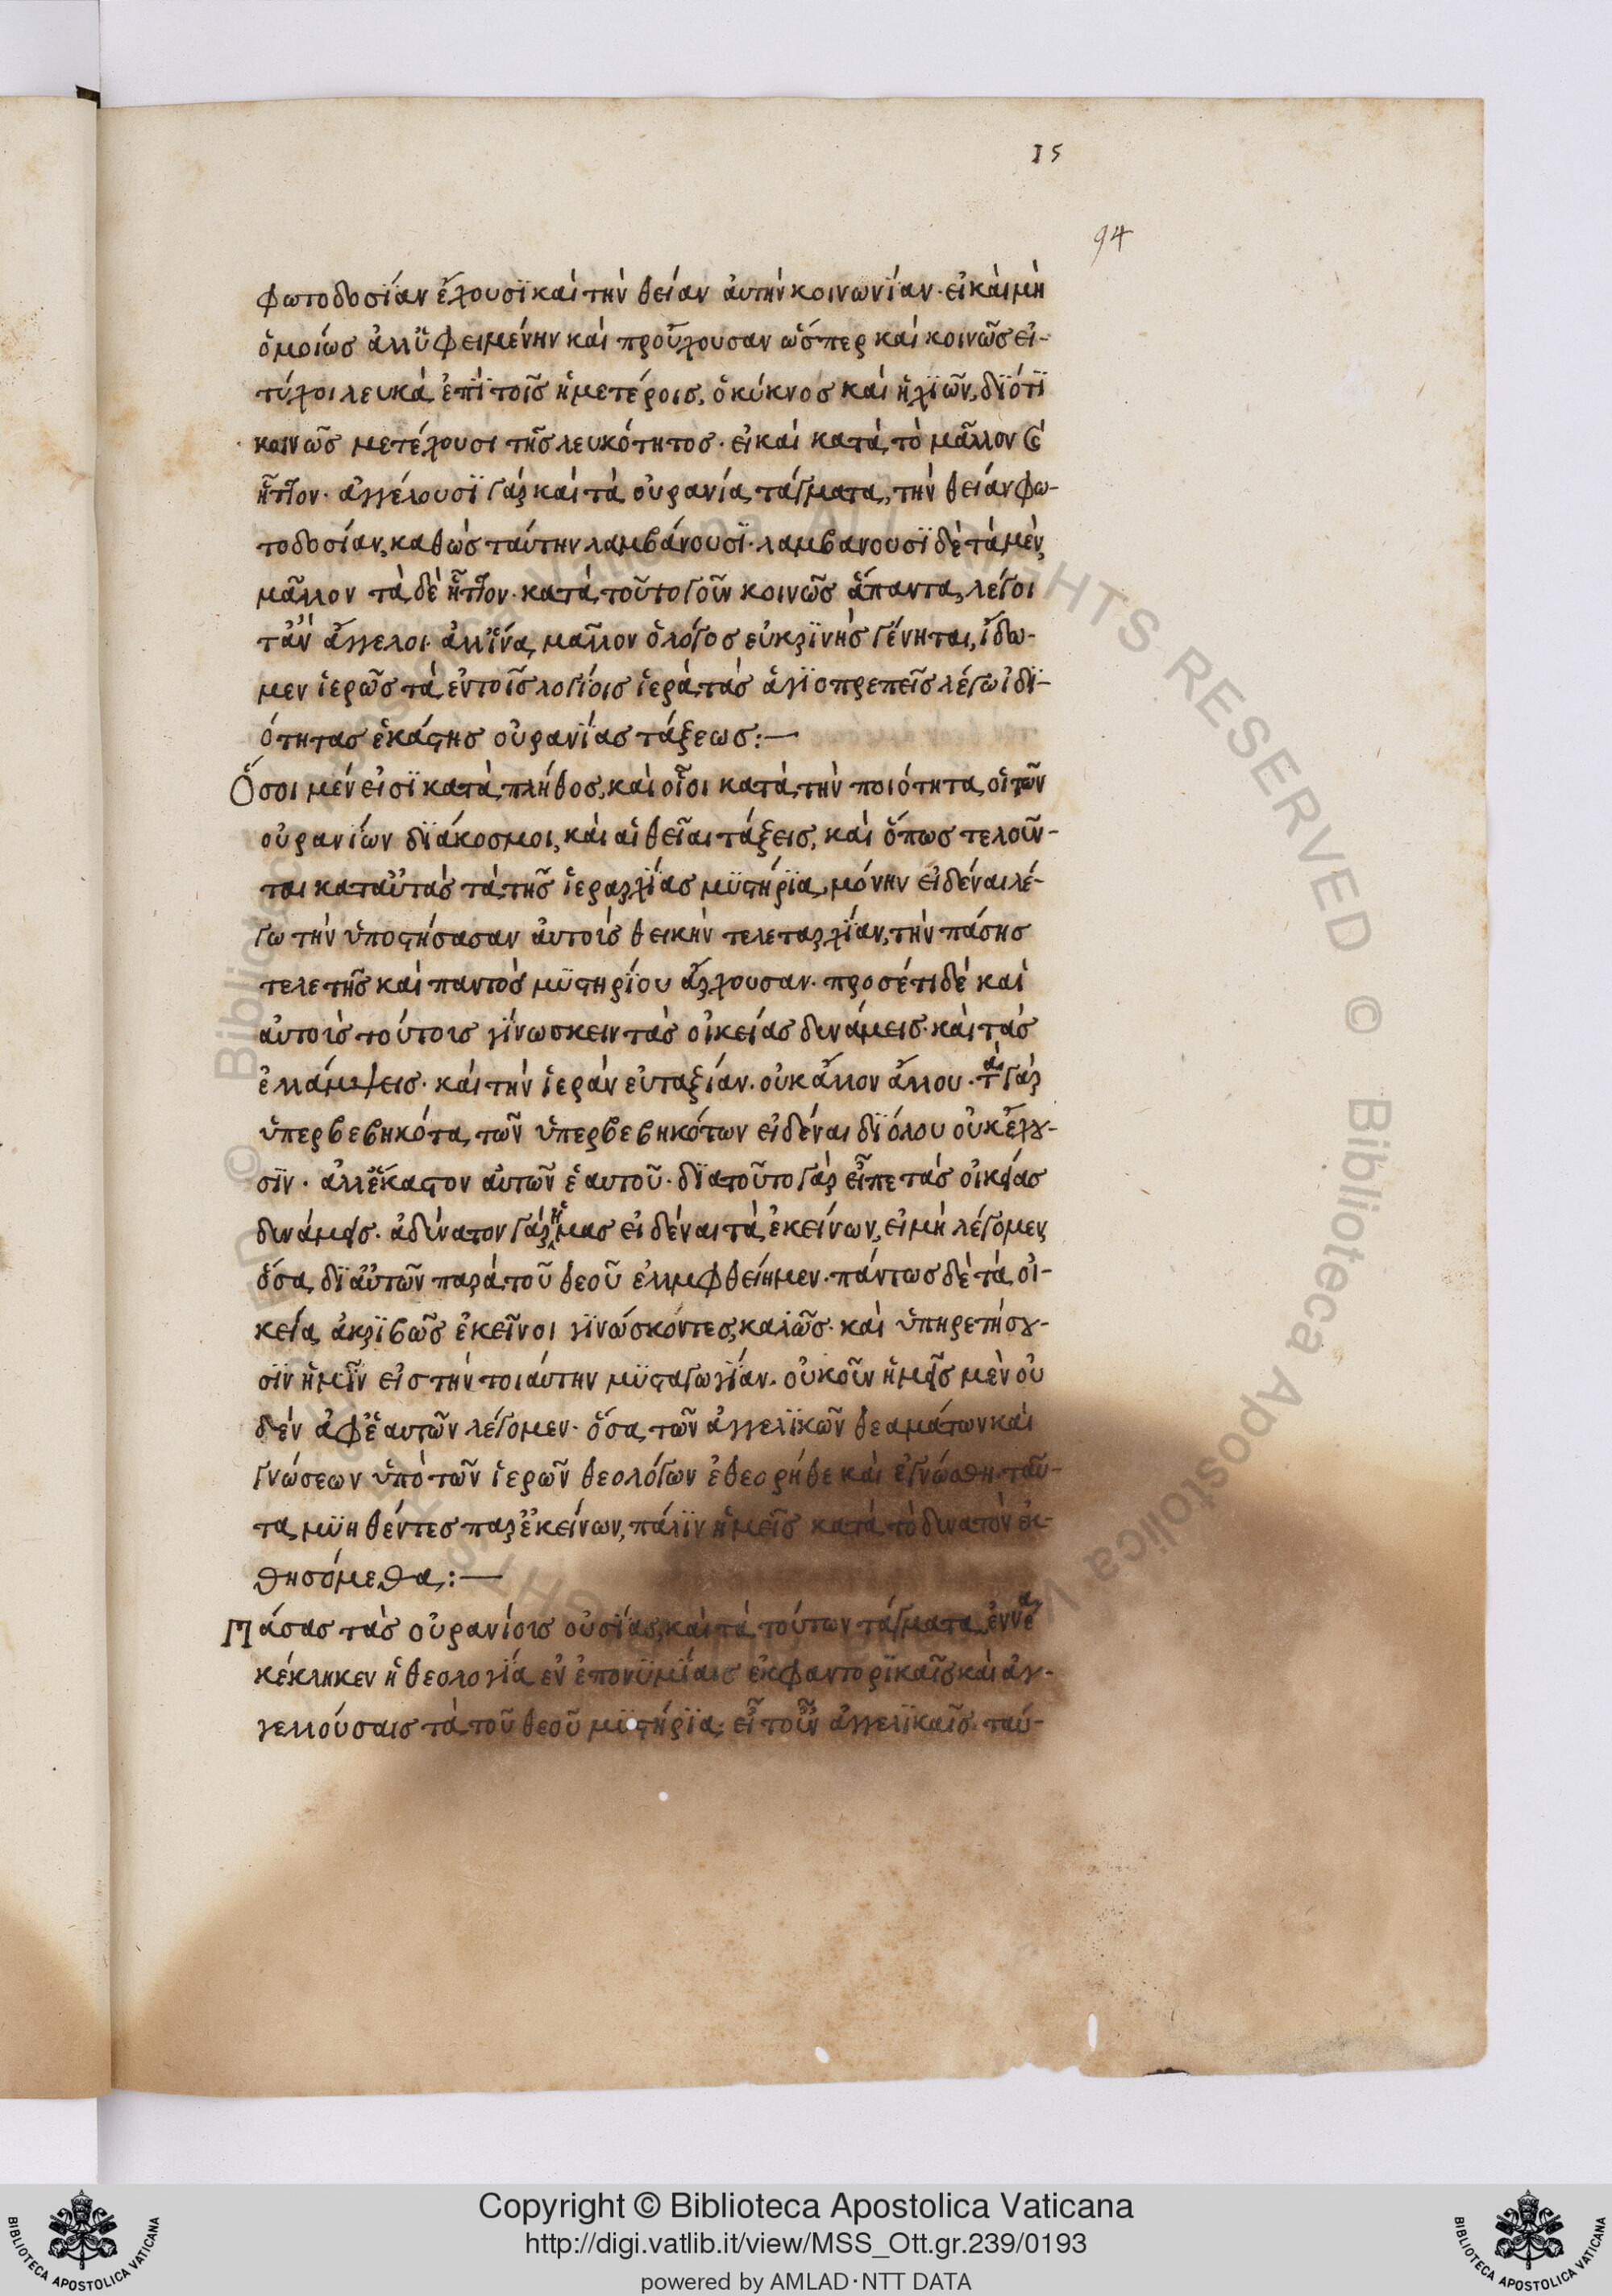 15
94
φωτοδοσίαν ἔχουσϊ καὶ τὴν θείαν ἀυτὴν κοινωνίαν· εἰ κὰι μὴ
ὁμοίως ἀλλ' ὑφειμένην καὶ προὔχουσαν ὥσπερ καὶ κοινῶς εἰ-
τύχοι λευκὰ ἐπὶ τοῖς ἡμετέροις, ὁ κύκνος καὶ ἡ χϊὼν, δϊότϊ
κοινῶς μετέχουσι τῆς λευκότητος· εἰ καὶ κατὰ τὸ μᾶλλον καὶ
ἧττον· ἀγγέλουσϊ γὰρ καὶ τὰ οὐρανία τάγματα, τὴν θείαν φω-
τοδοσίαν, καθὼς ταύτην λαμβάνουσϊ· λαμβανουσϊ δὲ τὰ μὲν
μᾶλλον τὰ δὲ ἧττον· κατὰ τοῦτο γοῦν κοινῶς ἅπαντα, λέγοι
τ' ἂν ἄγγελοι· ἀλλ' ἵνα μᾶλλον ὁ λόγος εὐκρϊνὴς γένηται, ἴδω-
μεν ἱερῶς τὰ ἐν τοῖς λογίοις ἱερὰ, τὰς ἁγϊοπρεπεῖς λέγω ἰδϊ-
ότητας ἑκάστης οὐρανίας τάξεως:—
Ὅσοι μέν εἰσϊ κατὰ πλῆθος, καὶ οἷοι κατὰ τὴν ποιότητα οἱ τῶν
οὐρανίων δϊάκοσμοι, καὶ αἱ θεῖαι τάξεις, καὶ ὅπως τελοῦν-
ται κατ' αὐτὰς τὰ τῆς ἱεραρχίας μϋστήρϊα, μόνην εἰδέναι λέ-
γω τὴν ὑποστήσασαν ἀυτοὶς θεικὴν τελεταρχίαν, τὴν πάσης
τελετῆς καὶ παντὸς μϋστηρίου ἄρχουσαν· προσέτι δὲ καὶ
αὐτοὶς τούτοις γϊνωσκειν τὰς οἰκείας δυνάμεις· κὰι τὰς
ἐλλάμψεις· κάι τὴν ἱερὰν εὐταξίαν· οὐκ ἄλλον ἄλλου· τὰ γὰρ
ὑπερβεβηκότα τῶν ὑπερβεβηκότων εἰδέναι δϊόλου οὐκ ἔχου-
σϊν· ἀλλ' ἕκαστον αὐτῶν ἑαυτοῦ· δϊατοῦτο γὰρ εἶπε τὰς οἰκείας
δυνάμεις· ἀδύνατον γὰρ ἡμας εἰδέναι τὰ ἐκείνων, εἰ μὴ λέγομεν
ὅσα δϊ' αὐτῶν παρὰ τοῦ θεοῦ ἐλλαμφθείημεν· πάντως δὲ τὰ οἰ-
κεία ἀκρϊβῶς ἐκεῖνοι γϊνώσκόντες, καλῶς· καὶ ὑπηρετήσου-
σϊν ἡμῖν εἰς τὴν τοιάυτην μϋσταγωγίαν· οὐκοῦν ἡμεῖς μὲν οὐ
δὲν ἀφ' ἑαυτῶν λέγομεν· ὅσα τῶν ἀγγελϊκῶν θεαμάτων κὰι
γνώσεων ὑπὸ τῶν ἱερῶν θεολόγων ἐθεορήθε κὰι ἐγνώσθη· ταῦ-
τα μϋηθέντες παρ' ἐκείνων, πάλϊν ἡμεῖς κατὰ τὸ δυνατὸν ἐκ-
θησόμεθα:—
Πάσας τὰς οὐρανίοις οὐσίας, κὰι τὰ τούτων τάγματα ἐννέα
κέκληκεν ἡ θεολογία ἐν ἐπονϋμίαις ἐκφαντορϊκαῖς κὰι ἀγ-
γελλούσαις τὰ τοῦ θεοῦ μϋστήρϊα· εἶτ' οὖν ἀγγελϊκαῖς· ταύ-
Copyright © Biblioteca Apostolica Vaticana
http://digi.vatlib.it/view/MSS_Ott.gr.239/0193
powered by AMLAD·NTT DATA
BIBLIOTECA APOSTOLICA VATICANA
BIBLIOTECA APOSTOLICA VATICANA